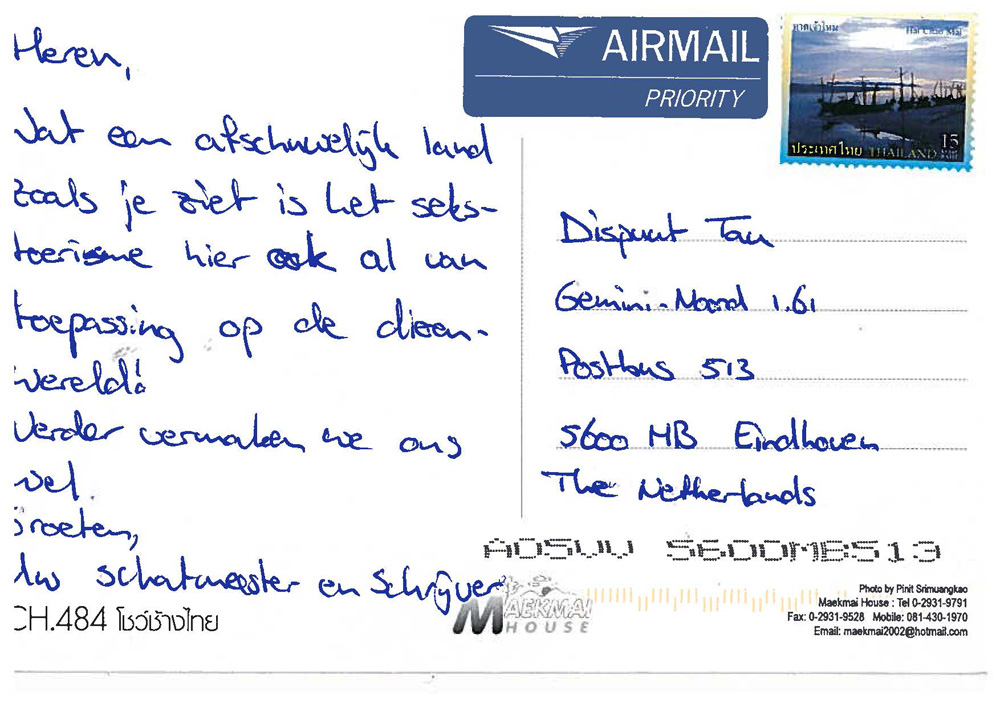 Heren,
Wat een afschuwelijk land
zoals je ziet is het seks-
toerisme hier ook al van
toepassing op de dieren-
wereld!
Verder vermaken we ons
wel.
Groeten,
Uw schatmeester en Schrijver
CH.484 โชว์ช้างไทย
AIRMAIL
PRIORITY
หาดเจ้าไหม Hat Chao Mai
15
ประเทศไทย THAILAND
Dispuut Tau
Gemini-Noord 1.61
Postbus 513
5600 MB Eindhoven
The Netherlands
AOSUU 5600MB513
MAEKMAI
HOUSE
Photo by Pinit Srimuangkao
Maekmai House : Tel 0-2931-9791
Fax: 0-2931-9528 Mobile: 081-430-1970
Email: maekmai2002@hotmail.com